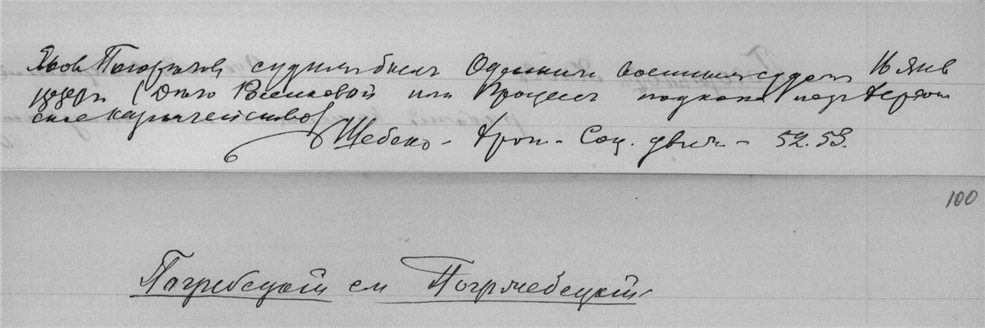 Яков Погорелов судим был Одесским военным судом 16 янв
1880 г. (Дело Виттеновой или Процесс подкопа под Херсон
ское казначейство)
Шебеко - Хрон. Соц. движ. - 52. 53.
100
Погребецкий см Погржебецкий